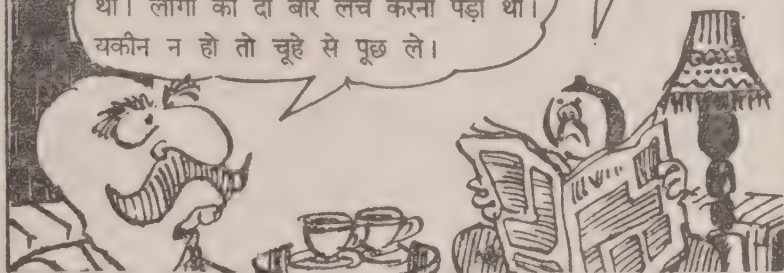 था। लोगों को दो बार लंच करना पड़ा था।
यकीन न हो तो चूहे से पूछ ले।